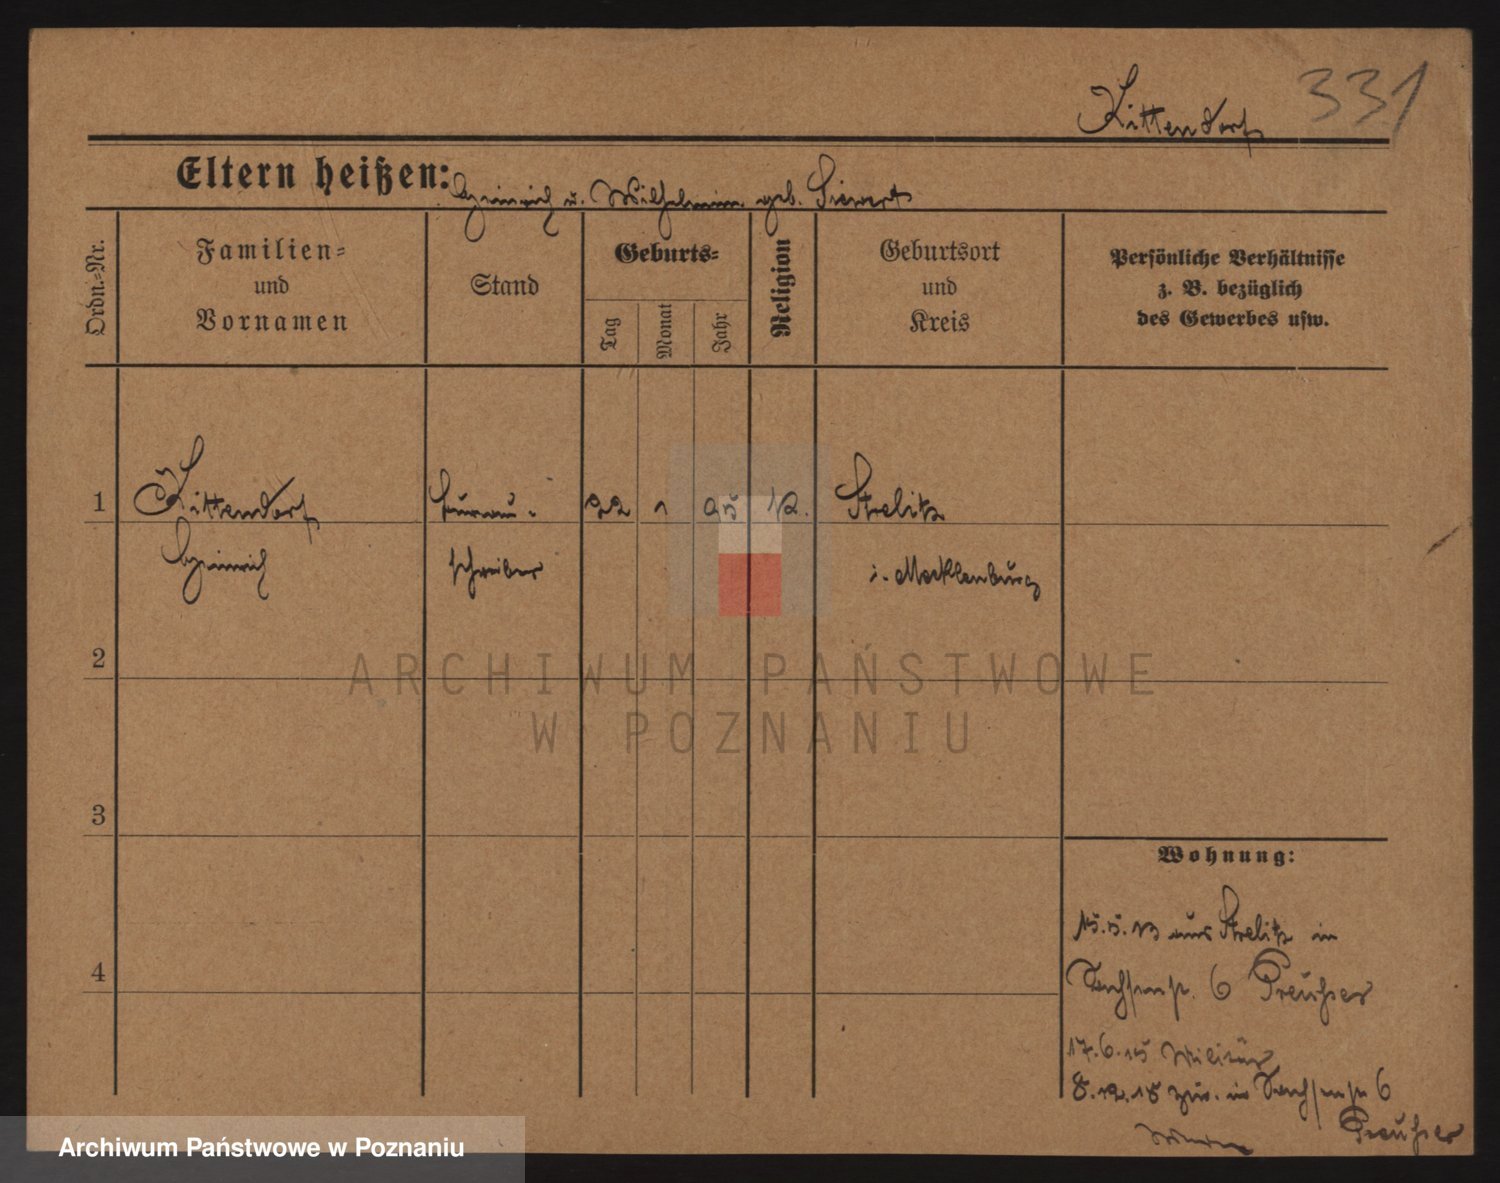 Kittendorf 331
Eltern heißen: Heinrich u. Wilhelmine geb. Siewert
Ordn.-Nr.
Familien-
und
Vornamen
Stand
Geburts-
Tag
Monat
Jahr
Religion
Geburtsort
und
Kreis
Persönliche Verhältnisse
z. B. bezüglich
des Gewerbes usw.
1 Kittendorf 22 1 95 Strelitz
Heinrich schreiber i. Mecklenburg
2
3
4
Wohnung:
15.5.13 aus Strelitz in
Sachsenstr. 6 Preußer
17.6.15 Militär
8.12.18 zur. in Sachsenstr 6
Preußer
ARCHIWUM PAŃSTWOWE
W POZNANIU
Archiwum Państwowe w Poznaniu